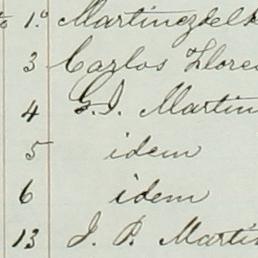 1.º Martinez del
3 Carlos Flores
4 G. I. Martin
5 idem
6 idem
13 J. P. Martin